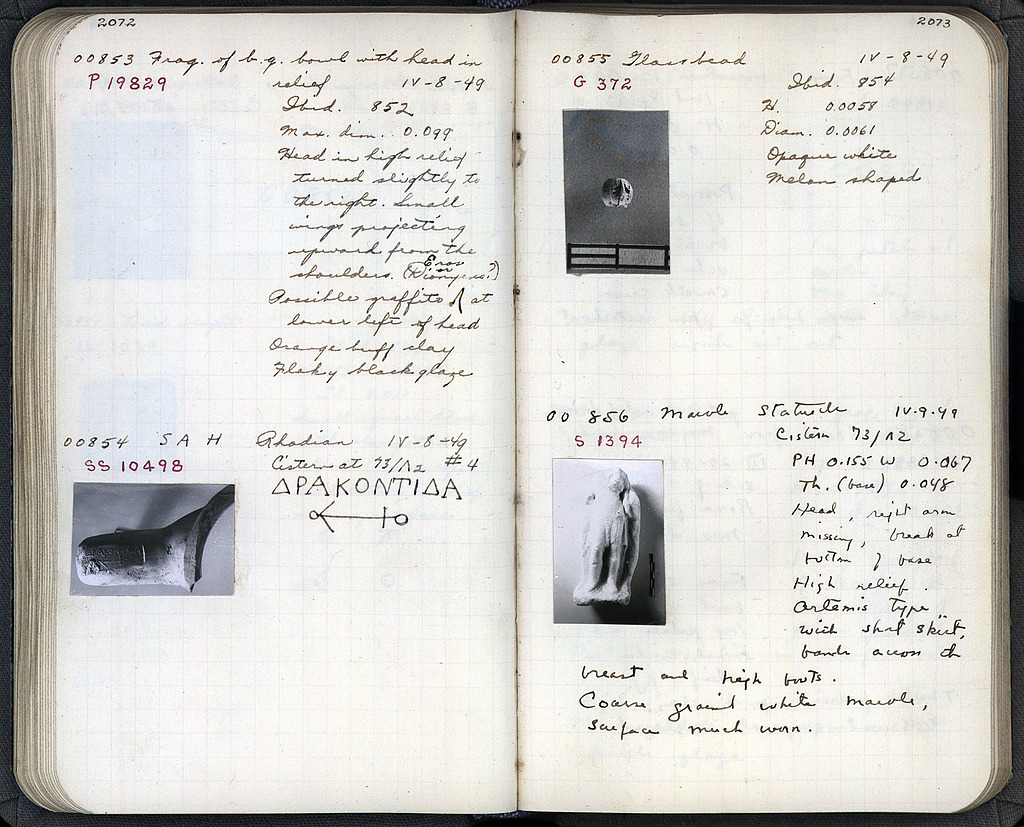 2072
OO853 Frag. of b.g. bowl with head in
P 19829 relief IV-8-49
Ibid. 852
Max. dim. 0.099
Head in high relief
turned slightly to
the right. Small
wings projecting
upward from the
shoulders. (Eros or Dionysos?)
Possible graffito at
lower left of head
Orange buff clay
Flaky black glaze
OO854 SAH Rhodian IV-8-49
SS 10498 Cistern at 73/ΛΖ #4
ΔΡΑΚΟΝΤΙΔΑ
2073
OO855 Glass bead IV-8-49
G 372 Ibid. 854
H. 0.0058
Diam. 0.0061
Opaque white
Melon shaped
OO 856 Marble Statuette IV-9-49
S 1394 Cistern 73/ΛΖ
PH 0.155 W 0.067
Th. (base) 0.048
Head, right arm
missing, break at
bottom of base
High relief.
Artemis type,
with short skirt,
bands across the
breast and high boots.
Coarse grained white marble,
surface much worn.